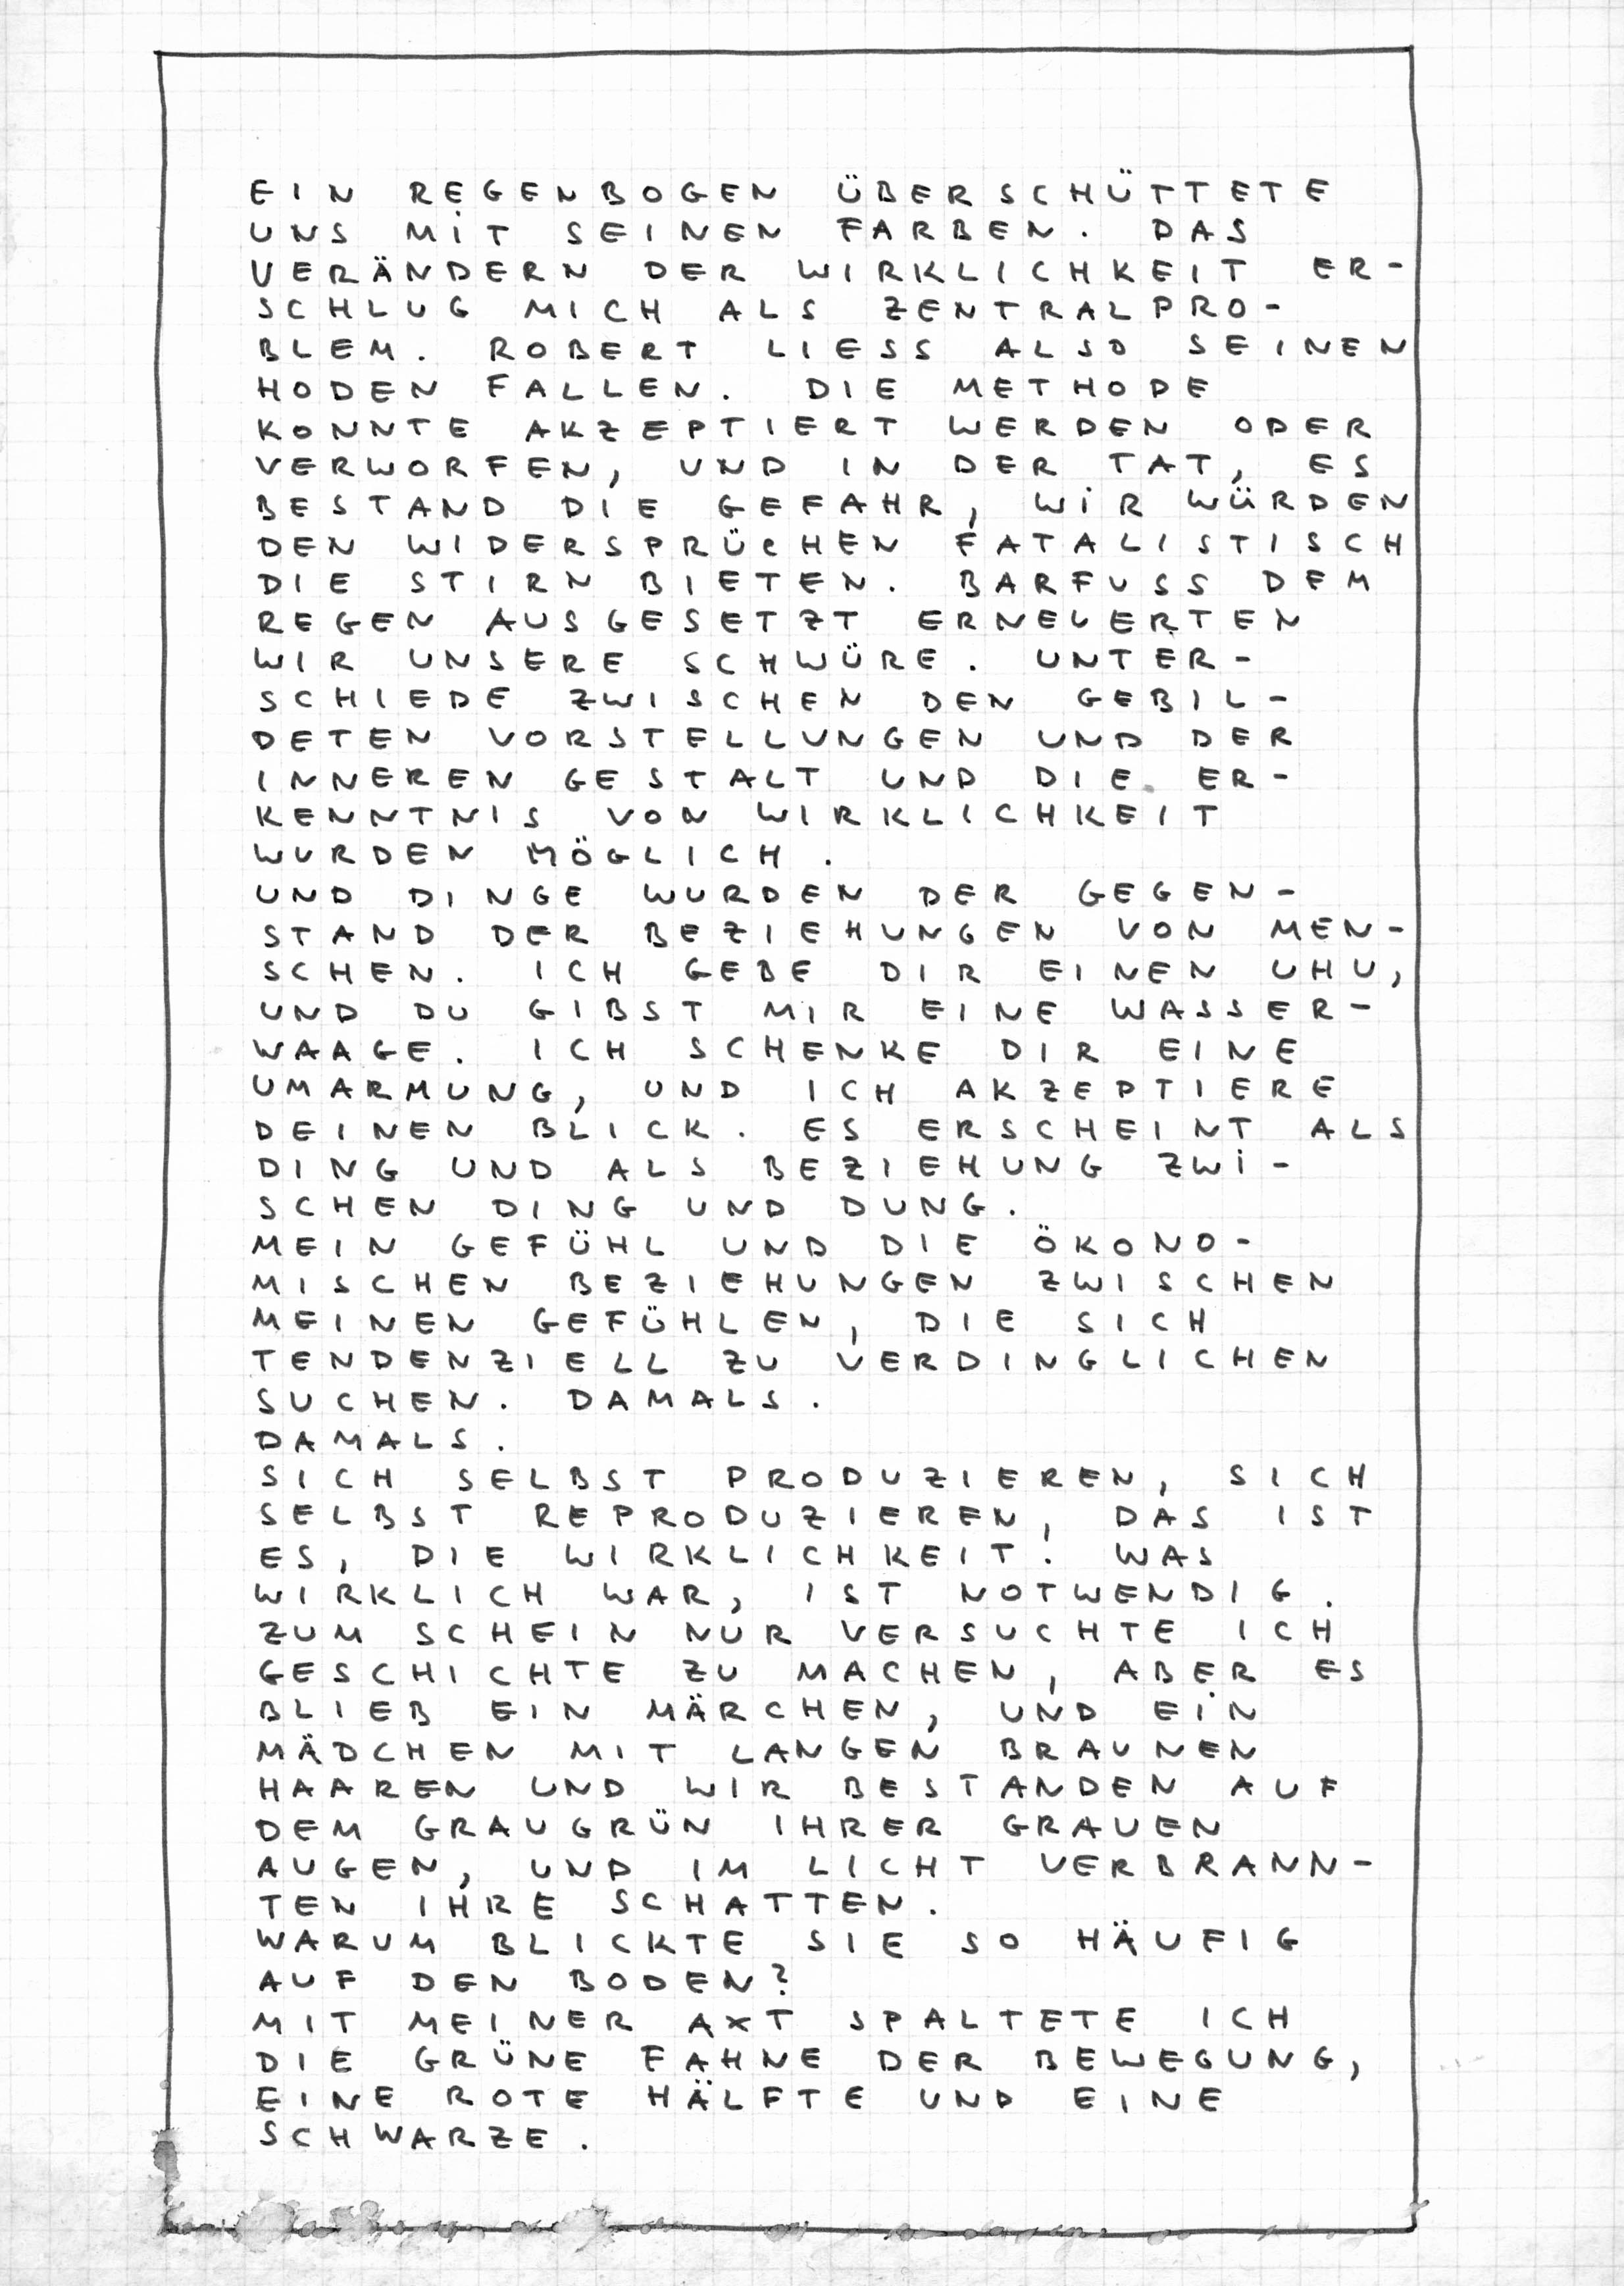 EIN REGENBOGEN ÜBERSCHÜTTETE
UNS MIT SEINEN FARBEN. DAS
VERÄNDERN DER WIRKLICHKEIT ER-
SCHLUG MICH ALS ZENTRALPRO-
BLEM. ROBERT LIESS ALSO SEINEN
HODEN FALLEN. DIE METHODE
KONNTE AKZEPTIERT WERDEN ODER
VERWORFEN, UND IN DER TAT, ES
BESTAND DIE GEFAHR, WIR WÜRDEN
DEN WIDERSPRÜCHEN FATALISTISCH
DIE STIRN BIETEN. BARFUSS DEM
REGEN AUSGESETZT ERNEUERTEN
WIR UNSERE SCHWÜRE. UNTER-
SCHIEDE ZWISCHEN DEN GEBIL-
DETEN VORSTELLUNGEN UND DER
INNEREN GESTALT UND DIE ER-
KENNTNIS VON WIRKLICHKEIT
WURDEN MÖGLICH.
UND DINGE WURDEN DER GEGEN-
STAND DER BEZIEHUNGEN VON MEN-
SCHEN. ICH GEBE DIR EINEN UHU,
UND DU GIBST MIR EINE WASSER-
WAAGE. ICH SCHENKE DIR EINE
UMARMUNG, UND ICH AKZEPTIERE
DEINEN BLICK. ES ERSCHEINT ALS
DING UND ALS BEZIEHUNG ZWI-
SCHEN DING UND DUNG.
MEIN GEFÜHL UND DIE ÖKONO-
MISCHEN BEZIEHUNGEN ZWISCHEN
MEINEN GEFÜHLEN, DIE SICH
TENDENZIELL ZU VERDINGLICHEN
SUCHEN. DAMALS.
DAMALS.
SICH SELBST PRODUZIEREN, SICH
SELBST REPRODUZIEREN, DAS IST
ES, DIE WIRKLICHKEIT! WAS
WIRKLICH WAR, IST NOTWENDIG.
ZUM SCHEIN NUR VERSUCHTE ICH
GESCHICHTE ZU MACHEN, ABER ES
BLIEB EIN MÄRCHEN, UND EIN
MÄDCHEN MIT LANGEN BRAUNEN
HAAREN UND WIR BESTANDEN AUF
DEM GRAUGRÜN IHRER GRAUEN
AUGEN, UND IM LICHT VERBRANN-
TEN IHRE SCHATTEN.
WARUM BLICKTE SIE SO HÄUFIG
AUF DEN BODEN?
MIT MEINER AXT SPALTETE ICH
DIE GRÜNE FAHNE DER BEWEGUNG,
EINE ROTE HÄLFTE UND EINE
SCHWARZE.